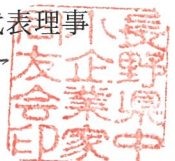 代表理事
長野県中
小企業家
同友会印